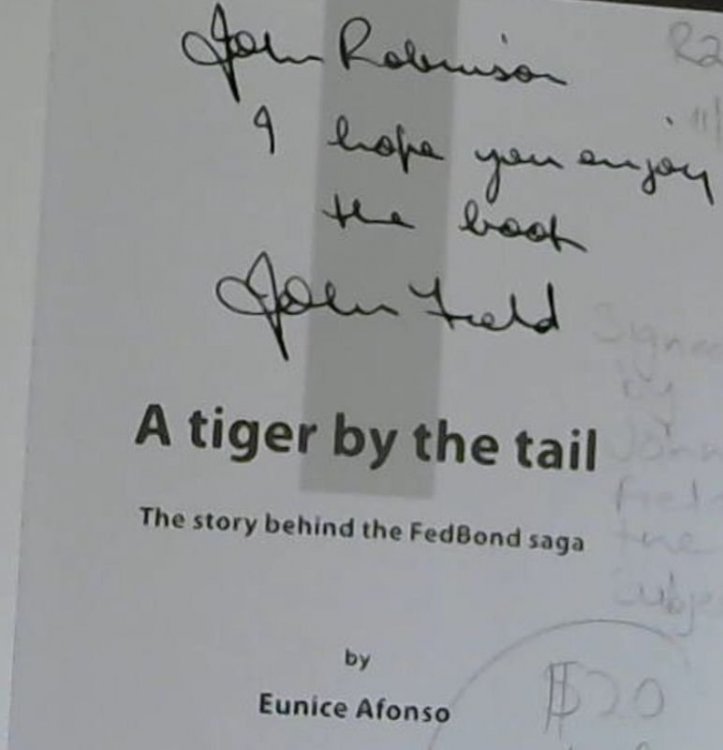 John Robinson
I hope you enjoy
the book
John Field
A tiger by the tail
The story behind the FedBond saga
by
Eunice Afonso
R2
11/
Signed
by
John
Field
the
subje
$20